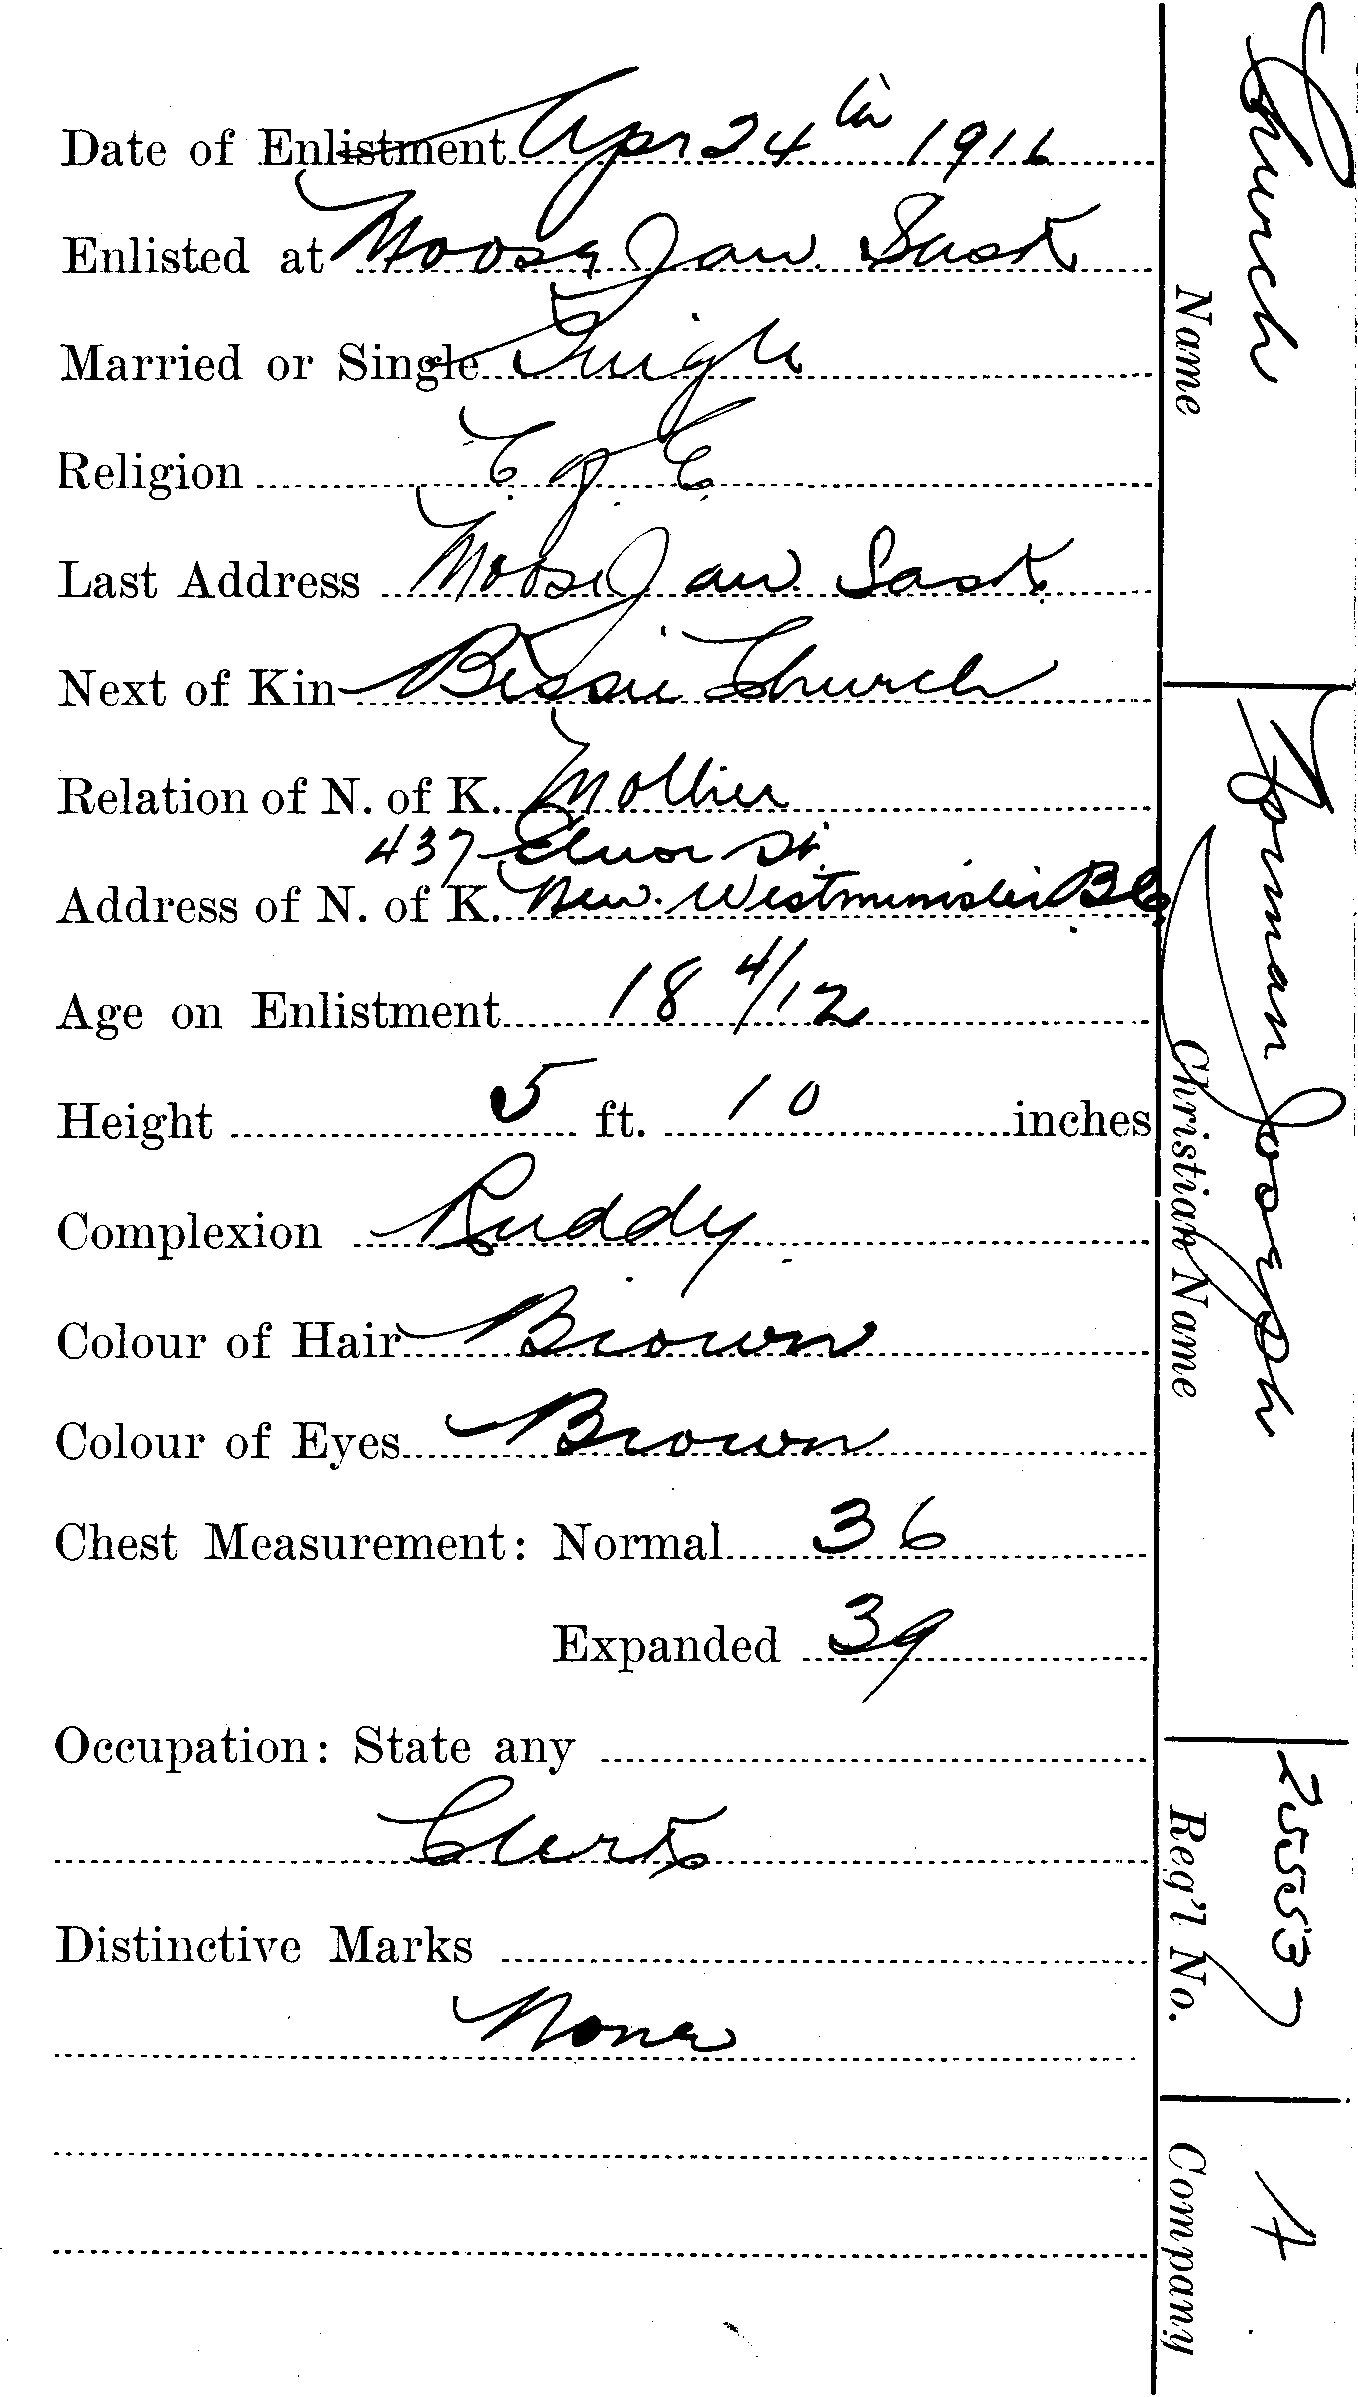 Date of Enlistment Apr 24th 1916
Enlisted at Moose Jaw Sask
Married or Single Single
Religion C. of E.
Last Address Moose Jaw Sask.
Next of Kin Bessie Church
Relation of N. of K. Mother
437 St.
Address of N. of K. New Westminister B.C.
Age on Enlistment 18 4/12
Height 5 ft. 10 inches
Complexion Ruddy
Colour of Hair Brown
Colour of Eyes Brown
Chest Measurement: Normal 36
Expanded 39
Occupation: State any
Clerk
Distinctive Marks
None
Church
Name
Norman Joseph
Christian Name
255537
Reg'l No.
A
Company